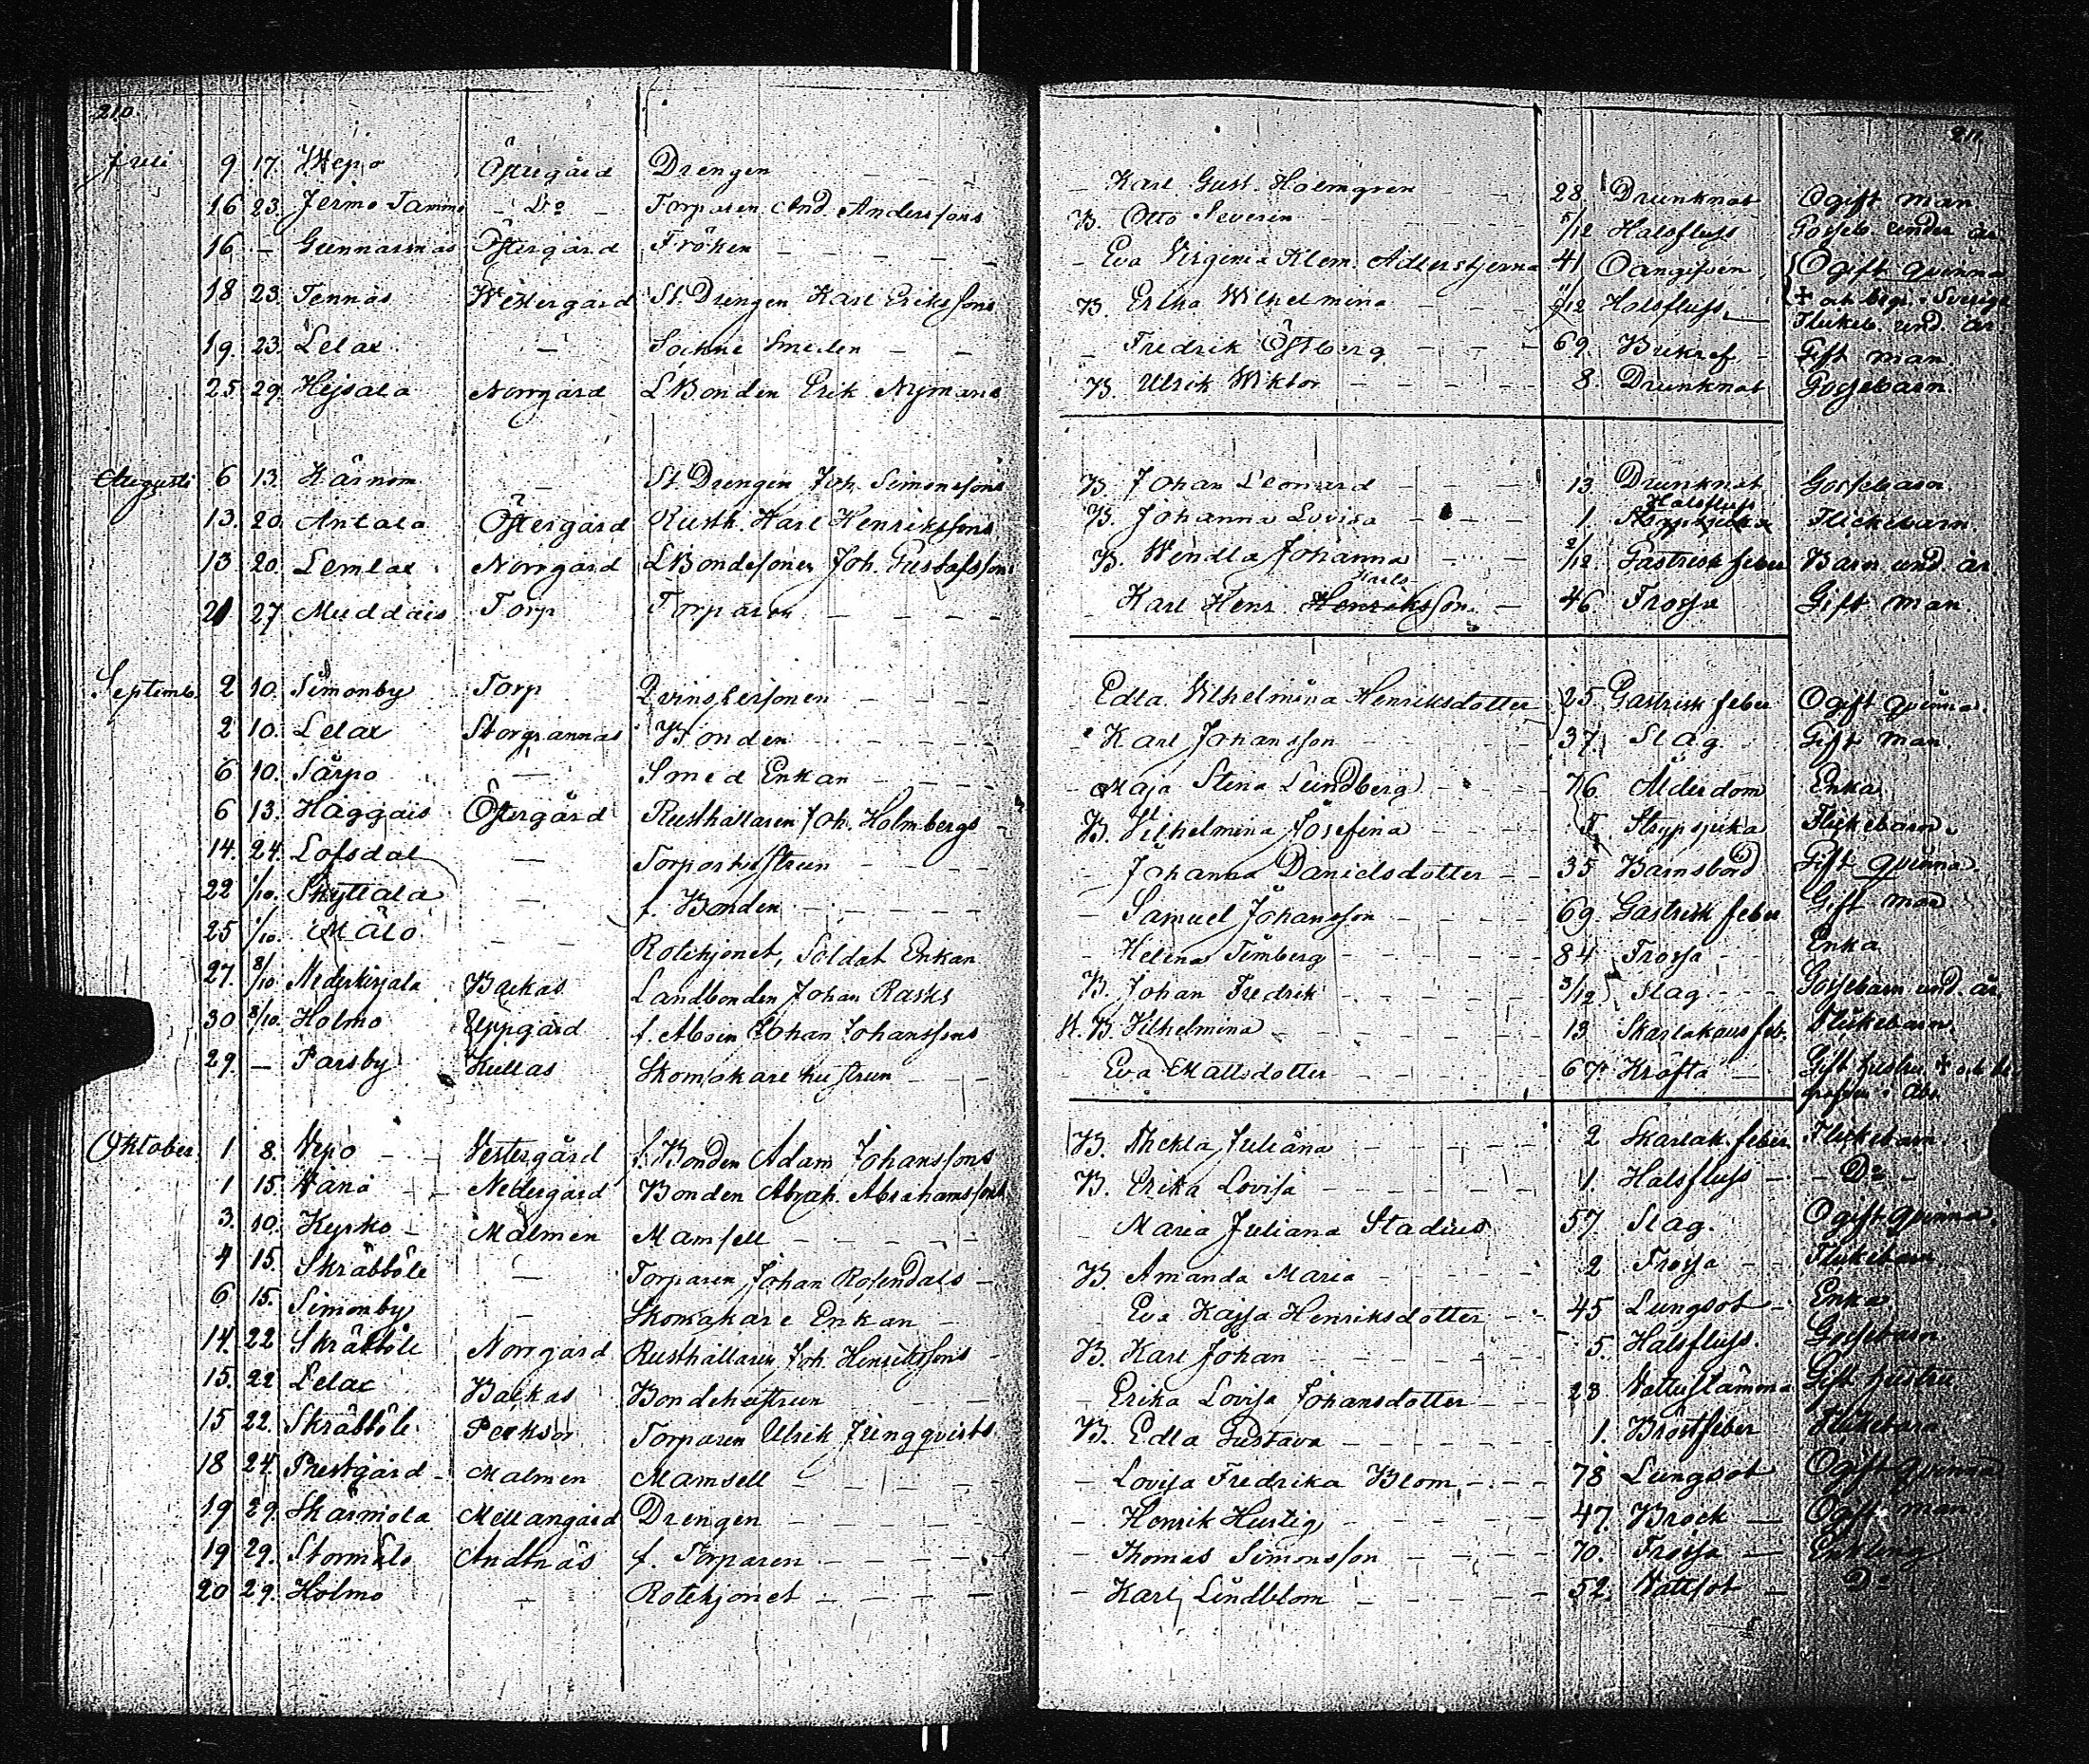 210.
211.
Juli 9 17. Wepo Östregård Drengen - - - - Karl Gust. Holmgren - - 28. Drunknat Ogift man.
16 23. Jermo Tammo - Do - Torparen And. Anderssons B. Otto Severin - - - 5/12 Halsfluss Gosseb. under år.
16 - Gunnarsnäs Östergård Fröken - - - - Eva Virginia Klem. Adlerstjerna 41 Oangifven. Ogift qvinna
✝ och begr. i Sverige
18 23. Tennäs Westergård St. Drengen Karl Erikssons B. Wilhelmina - - 11/12 Halsfluss. Flickeb. und. år.
19. 23. Lelax - Sockne Smeden - - Fredrik Östberg - - - - 69. Gift man
25. 29. Hejsala Norrgård L. Bonden Erik Nymans B. Ulrik Wiktor - - - - 8. Drunknat Gossebarn.
Augusti 6 13. Kärnom - St. Drengen Joh. Simonssons B. Johan Leonard - - - 13 Drunknat Gossebarn
Halsfluss
13. 20. Antala Östergård Rusth. Karl Henrikssons B. Johanna Lovisa - - - 1. Strypsjuka Flickebarn.
13 20. Lemlax Norrgård L. Bondesonen Joh. Gustafssons B. Wendla Johanna 2/12 Gastrisk feber Barn und. år.
Karls
21 27 Muddais Torp Torparen - - - - Karl Henr. Henriksson. - 46. Frossa Gift man.
Septemb. 2 10. Simonby Torp Qvinspersonen - - - Edla Wilhelmina Henriksdotter 25. Gastrisk feber Ogift qvinna.
2 10. Lelax Storgrannas Bonden - - - - Karl Johansson - - - - 37. Slag Gift man.
6 10. Särpo - Smed Enkan - - - Maja Stena Lundberg - - - 76. Ålderdom Enka
6 13. Haggais Östergård Rusthållaren Joh. Holmbergs - B. Vilhelmina Josefina - - - - Strypsjuka Flickebarn.
14. 24. Lofsdal - Torparhustrun - - - Johanna Danielsdotter - - 35 Barnsbörd Gift qvinna.
22 1/10. Skyttala - f. Bonden - - - - - Samuel Johansson - - - - 69. Gastrisk feber Gift man
25 1/10. Mälö - - Rotehjonet, Soldat Enkan - Helena Timberg - - - - 84 Frossa - - Enka
27. 8/10 Nederkirjala Backas Landbonden Johan Rasks B. Johan Fredrik - - - - 3/12 Slag - - - Gossebarn und. år.
30 8/10. Holmo Uppgård f. Johan Johanssons B. Vilhelmina - - - - - 13 Skarlakans feb. Flickebarn.
29. - Parsby Kullas Skomakare hustrun - - - Eva Mattsdotter - - - - 67. Kräfta - Gift hustru. ✝ och be-
grafven i Åbo.
Oktober. 1 8. Wepo - - Vestergård f. Bonden Adam Johanssons B. Thekla Juliana - - - - 2 Skarlak. feber Flickebarn
1 15. Vånå - - Nedergård Bonden Abrah. Abrahamssons B. Erika Lovisa - - - - - 1. Halsfluss - - Do -
3. 10. Kyrko - Malmen Mamsell - - - - Maria Juliana Stadius 57. Slag. Ogift qvinna.
4 15. Skräbböle - Torparen Johan Rosendals - B. Amanda Maria - - - - 2 Frossa - Flickebarn
6 15. Simonby - Skomakare Enkan - Eva Kajsa Henriksdotter - - 45 Lungsot - Enka
14. 22 Skräbböle Norrgård Rusthållaren Joh. Henrikssons - B. Karl Johan - - - - 5. Halsfluss. Gossebarn
15. 22 Lelax Backas Bondehustrun - - - Erika Lovisa Johansdotter - - 23. Gift hustru.
15 22. Skräbböle Torparen Ulrik Jungqvists. B. Edla Gustava - - - - - 1. Bröstfeber Flickebarn
18 24. Prestgård - Malmen Mamsell - - - - Lovisa Fredrika Blom. - - - 78 Lungsot Ogift qvinna
19 29. Skärmola Mellangård Drengen - - - - - Henrik Hurtig - - - - - 47. Bråck - Ogift man.
19 29. Anttnäs f. Torparen - - - - - Thomas Simonsson - - - - 70. Frossa - Enkling
20 29. Holmo - Rotehjonet - - - - Karl Lindblom - - - - - 52. Vattsot - Do